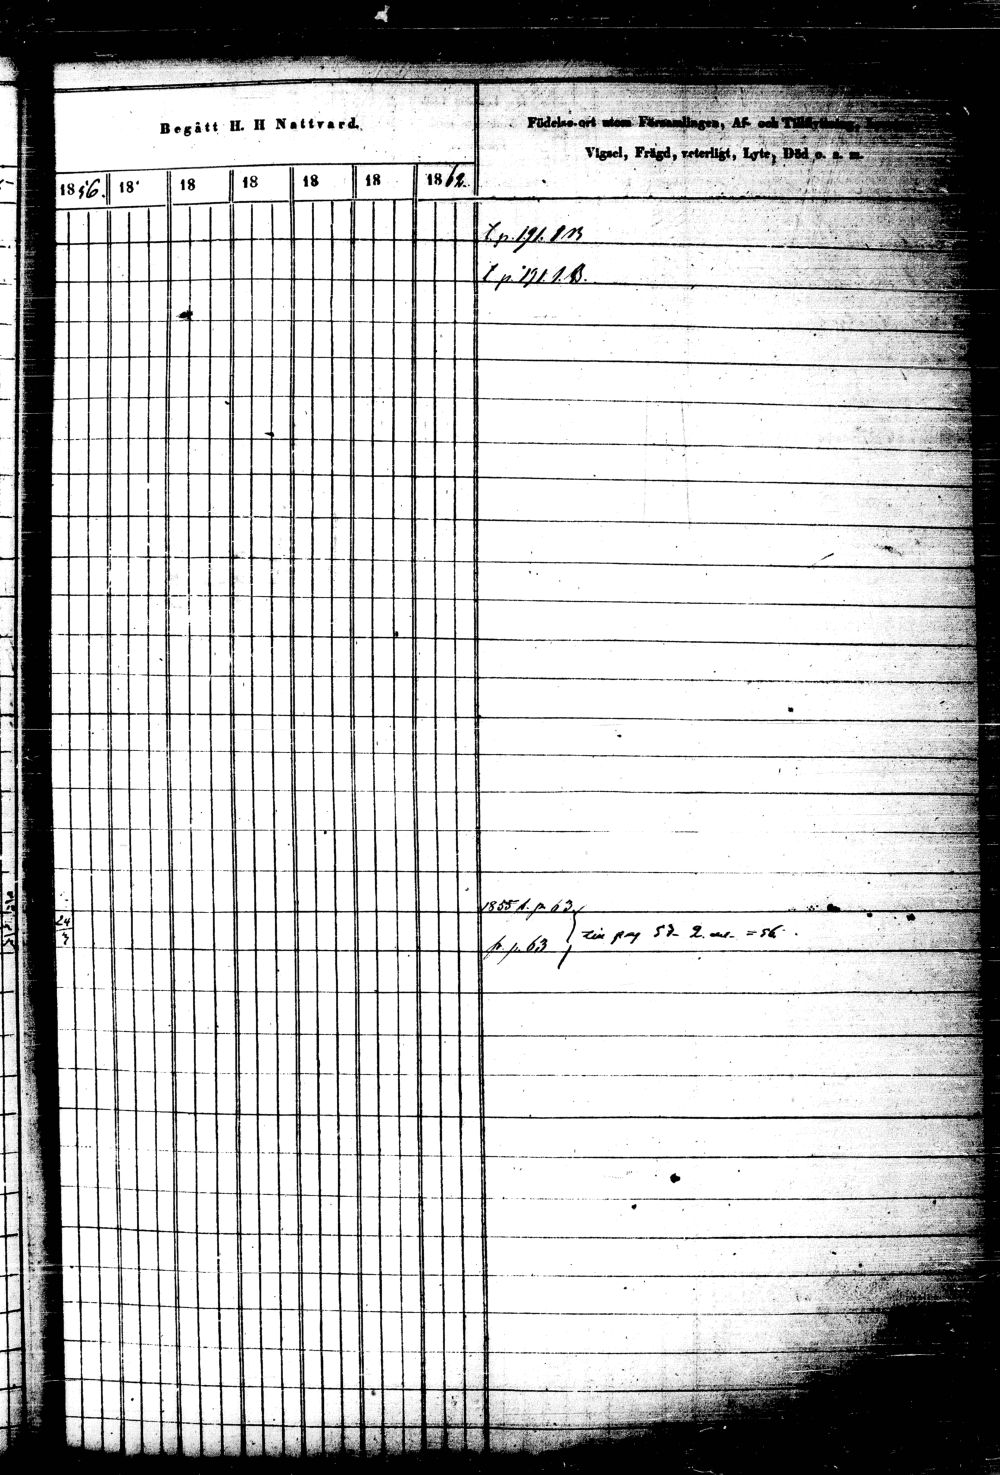 Begått H. H Nattvard.
Födelse-ort utom Församlingen, Af- och Tillflyttning,
Vigsel, Frägd, veterligt, Lyte, Död o. s. m.
1856. 18 18 18 18 18 1862.
p. 191.
p. 191. 1. B.
1855 f. p. 63
24
7
p. 63 pag 53 2 = 56.